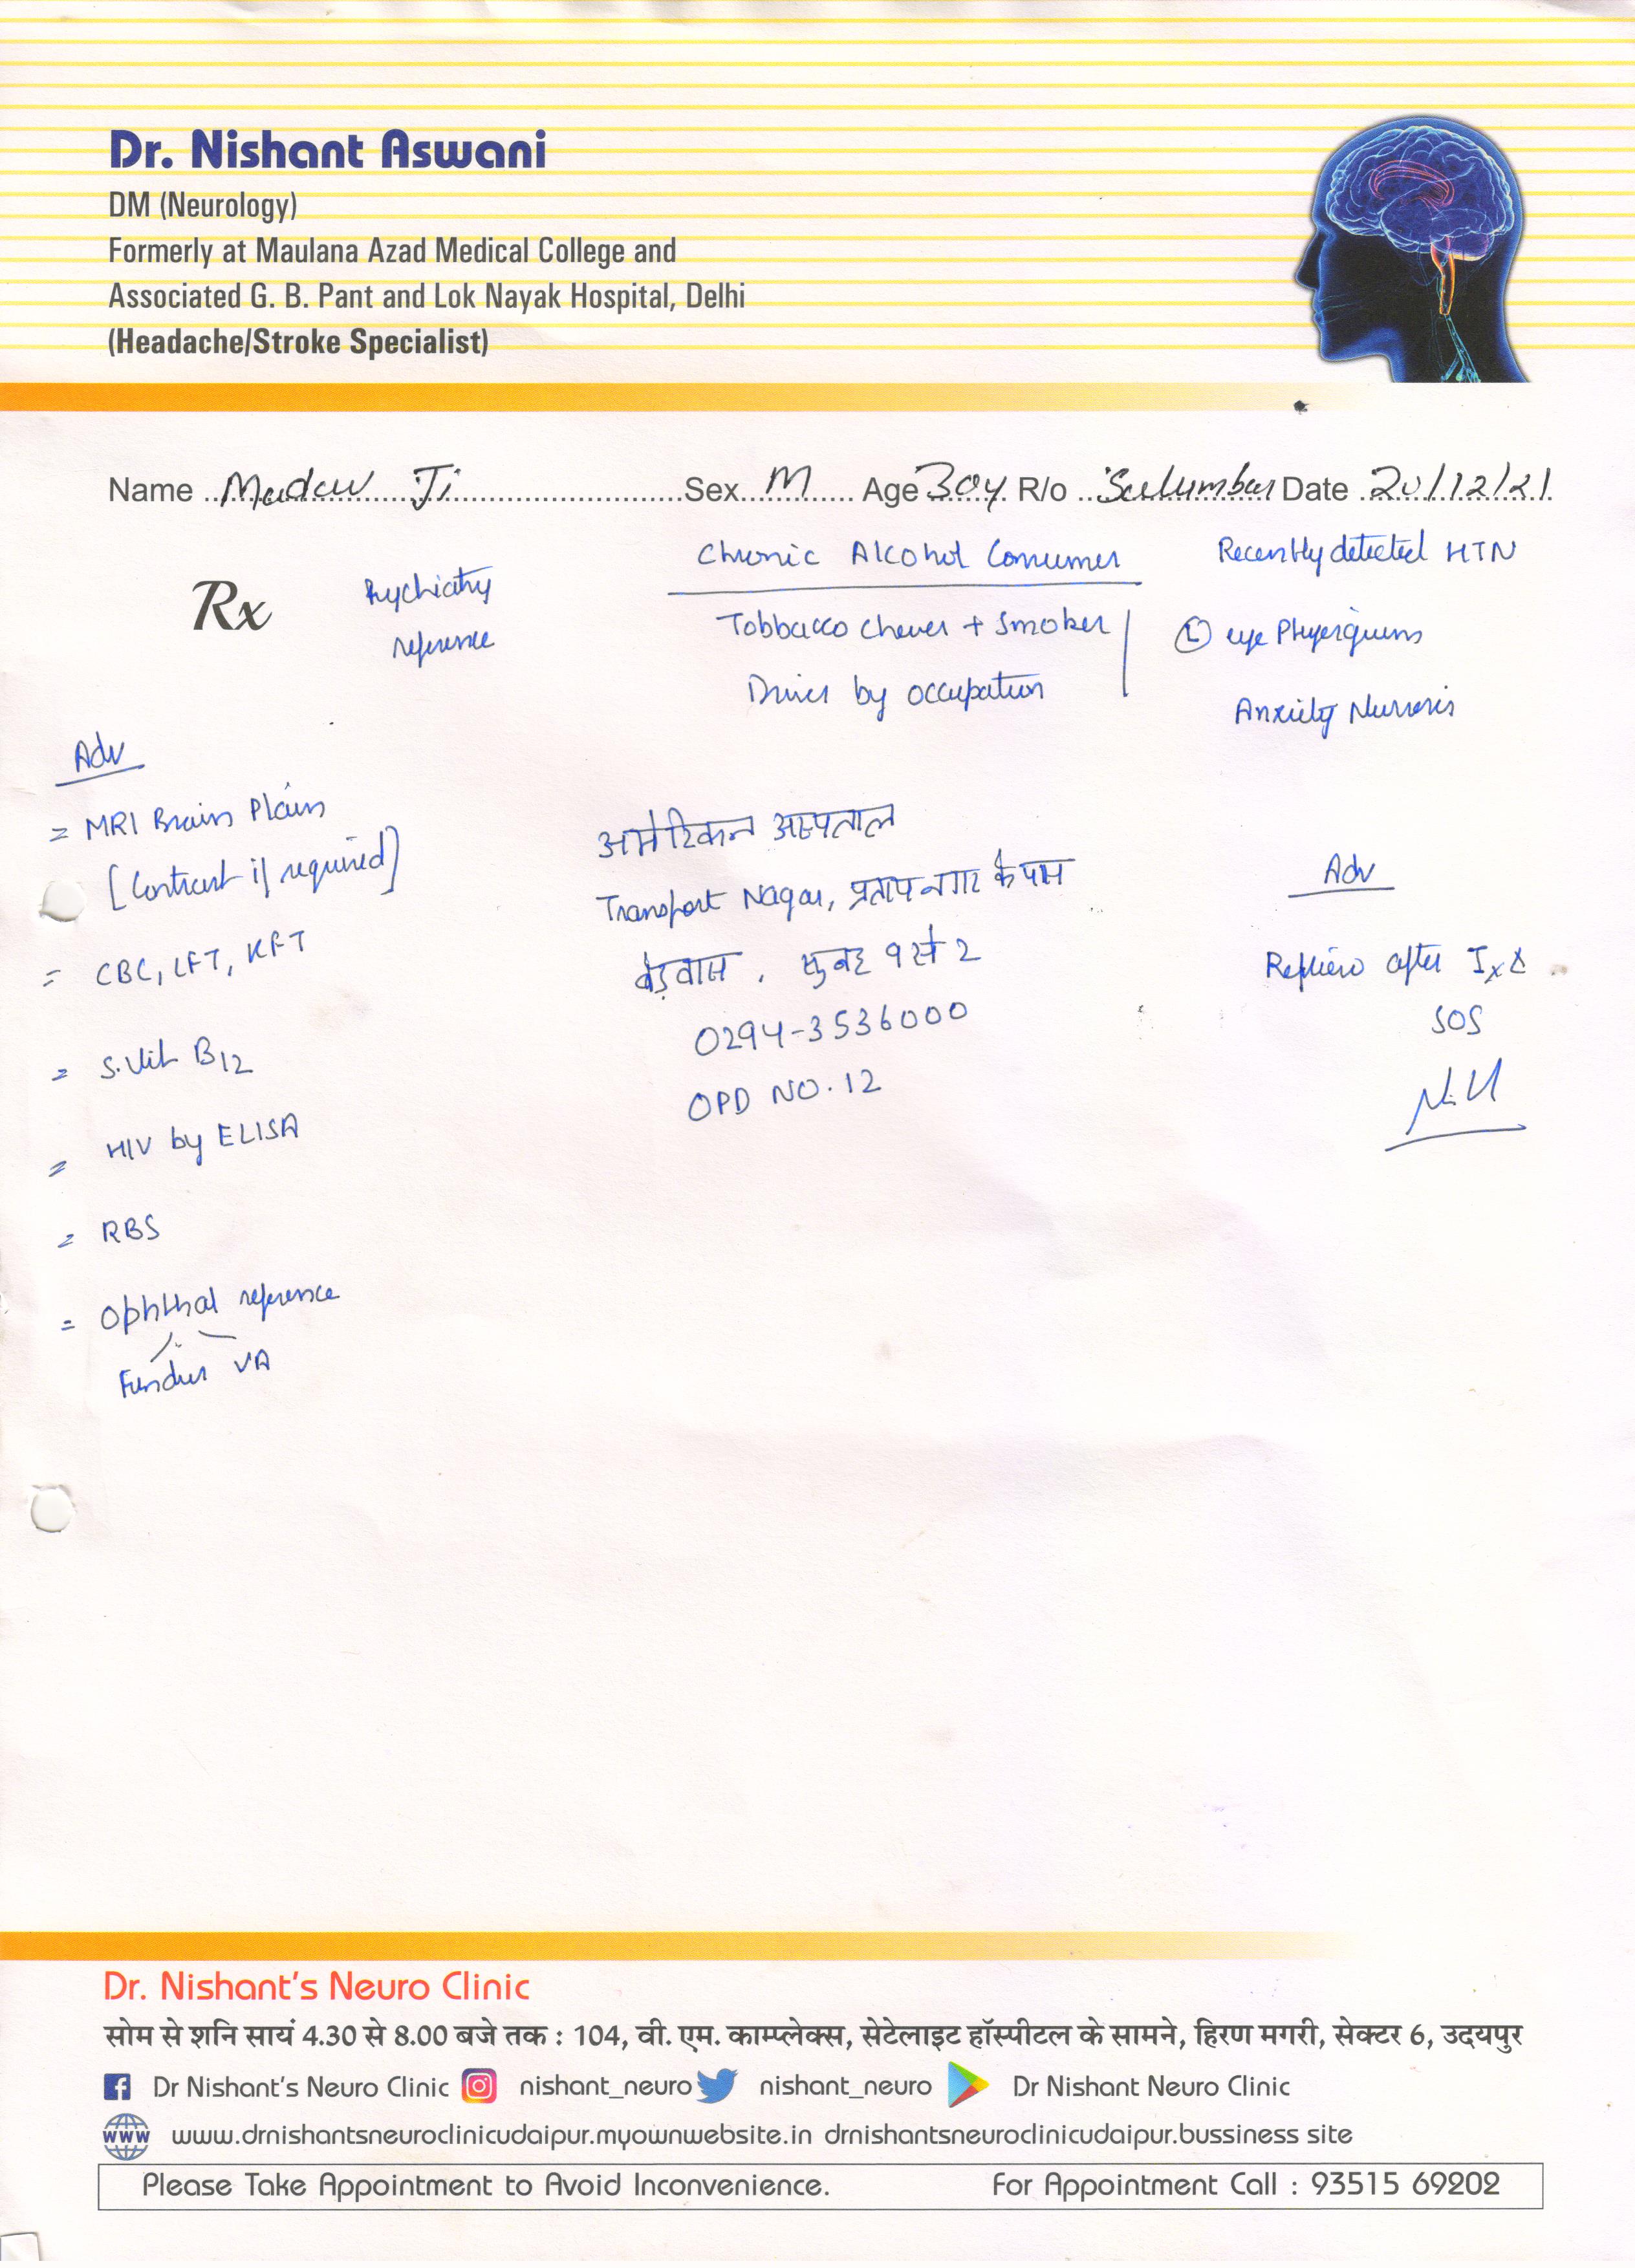 Dr. Nishant Aswani
DM (Neurology)
Formerly at Maulana Azad Medical College and
Associated G. B. Pant and Lok Nayak Hospital, Delhi
(Headache/Stroke Specialist)
Name Madew Ji Sex M Age 30y R/o Salumbar Date 20/12/21
Rx
Psychiatry
reference
Chronic Alcohol Consumer
Tobbacco Chewer + Smoker
Driver by occupation
Recently detected HTN
(L) eye
Anxiety
Adv
= MRI Brain Plain
[Contrast if required]
= CBC, LFT, KFT
= S. Vit B12
= HIV by ELISA
= RBS
= Ophthal reference
Fundus VA
अमेरिकन अस्पताल
Transport Nagar, प्रतापनगर के पास
बेड़वास, सुबह 9 से 2
0294-3536000
OPD NO. 12
Adv
Review after Ix &
SOS
Dr. Nishant's Neuro Clinic
सोम से शनि सायं 4.30 से 8.00 बजे तक : 104, वी. एम. काम्प्लेक्स, सेटेलाइट हॉस्पीटल के सामने, हिरण मगरी, सेक्टर 6, उदयपुर
Dr Nishant's Neuro Clinic nishant_neuro nishant_neuro Dr Nishant Neuro Clinic
www www.drnishantsneuroclinicudaipur.myownwebsite.in drnishantsneuroclinicudaipur.bussiness site
Please Take Appointment to Avoid Inconvenience. For Appointment Call : 93515 69202